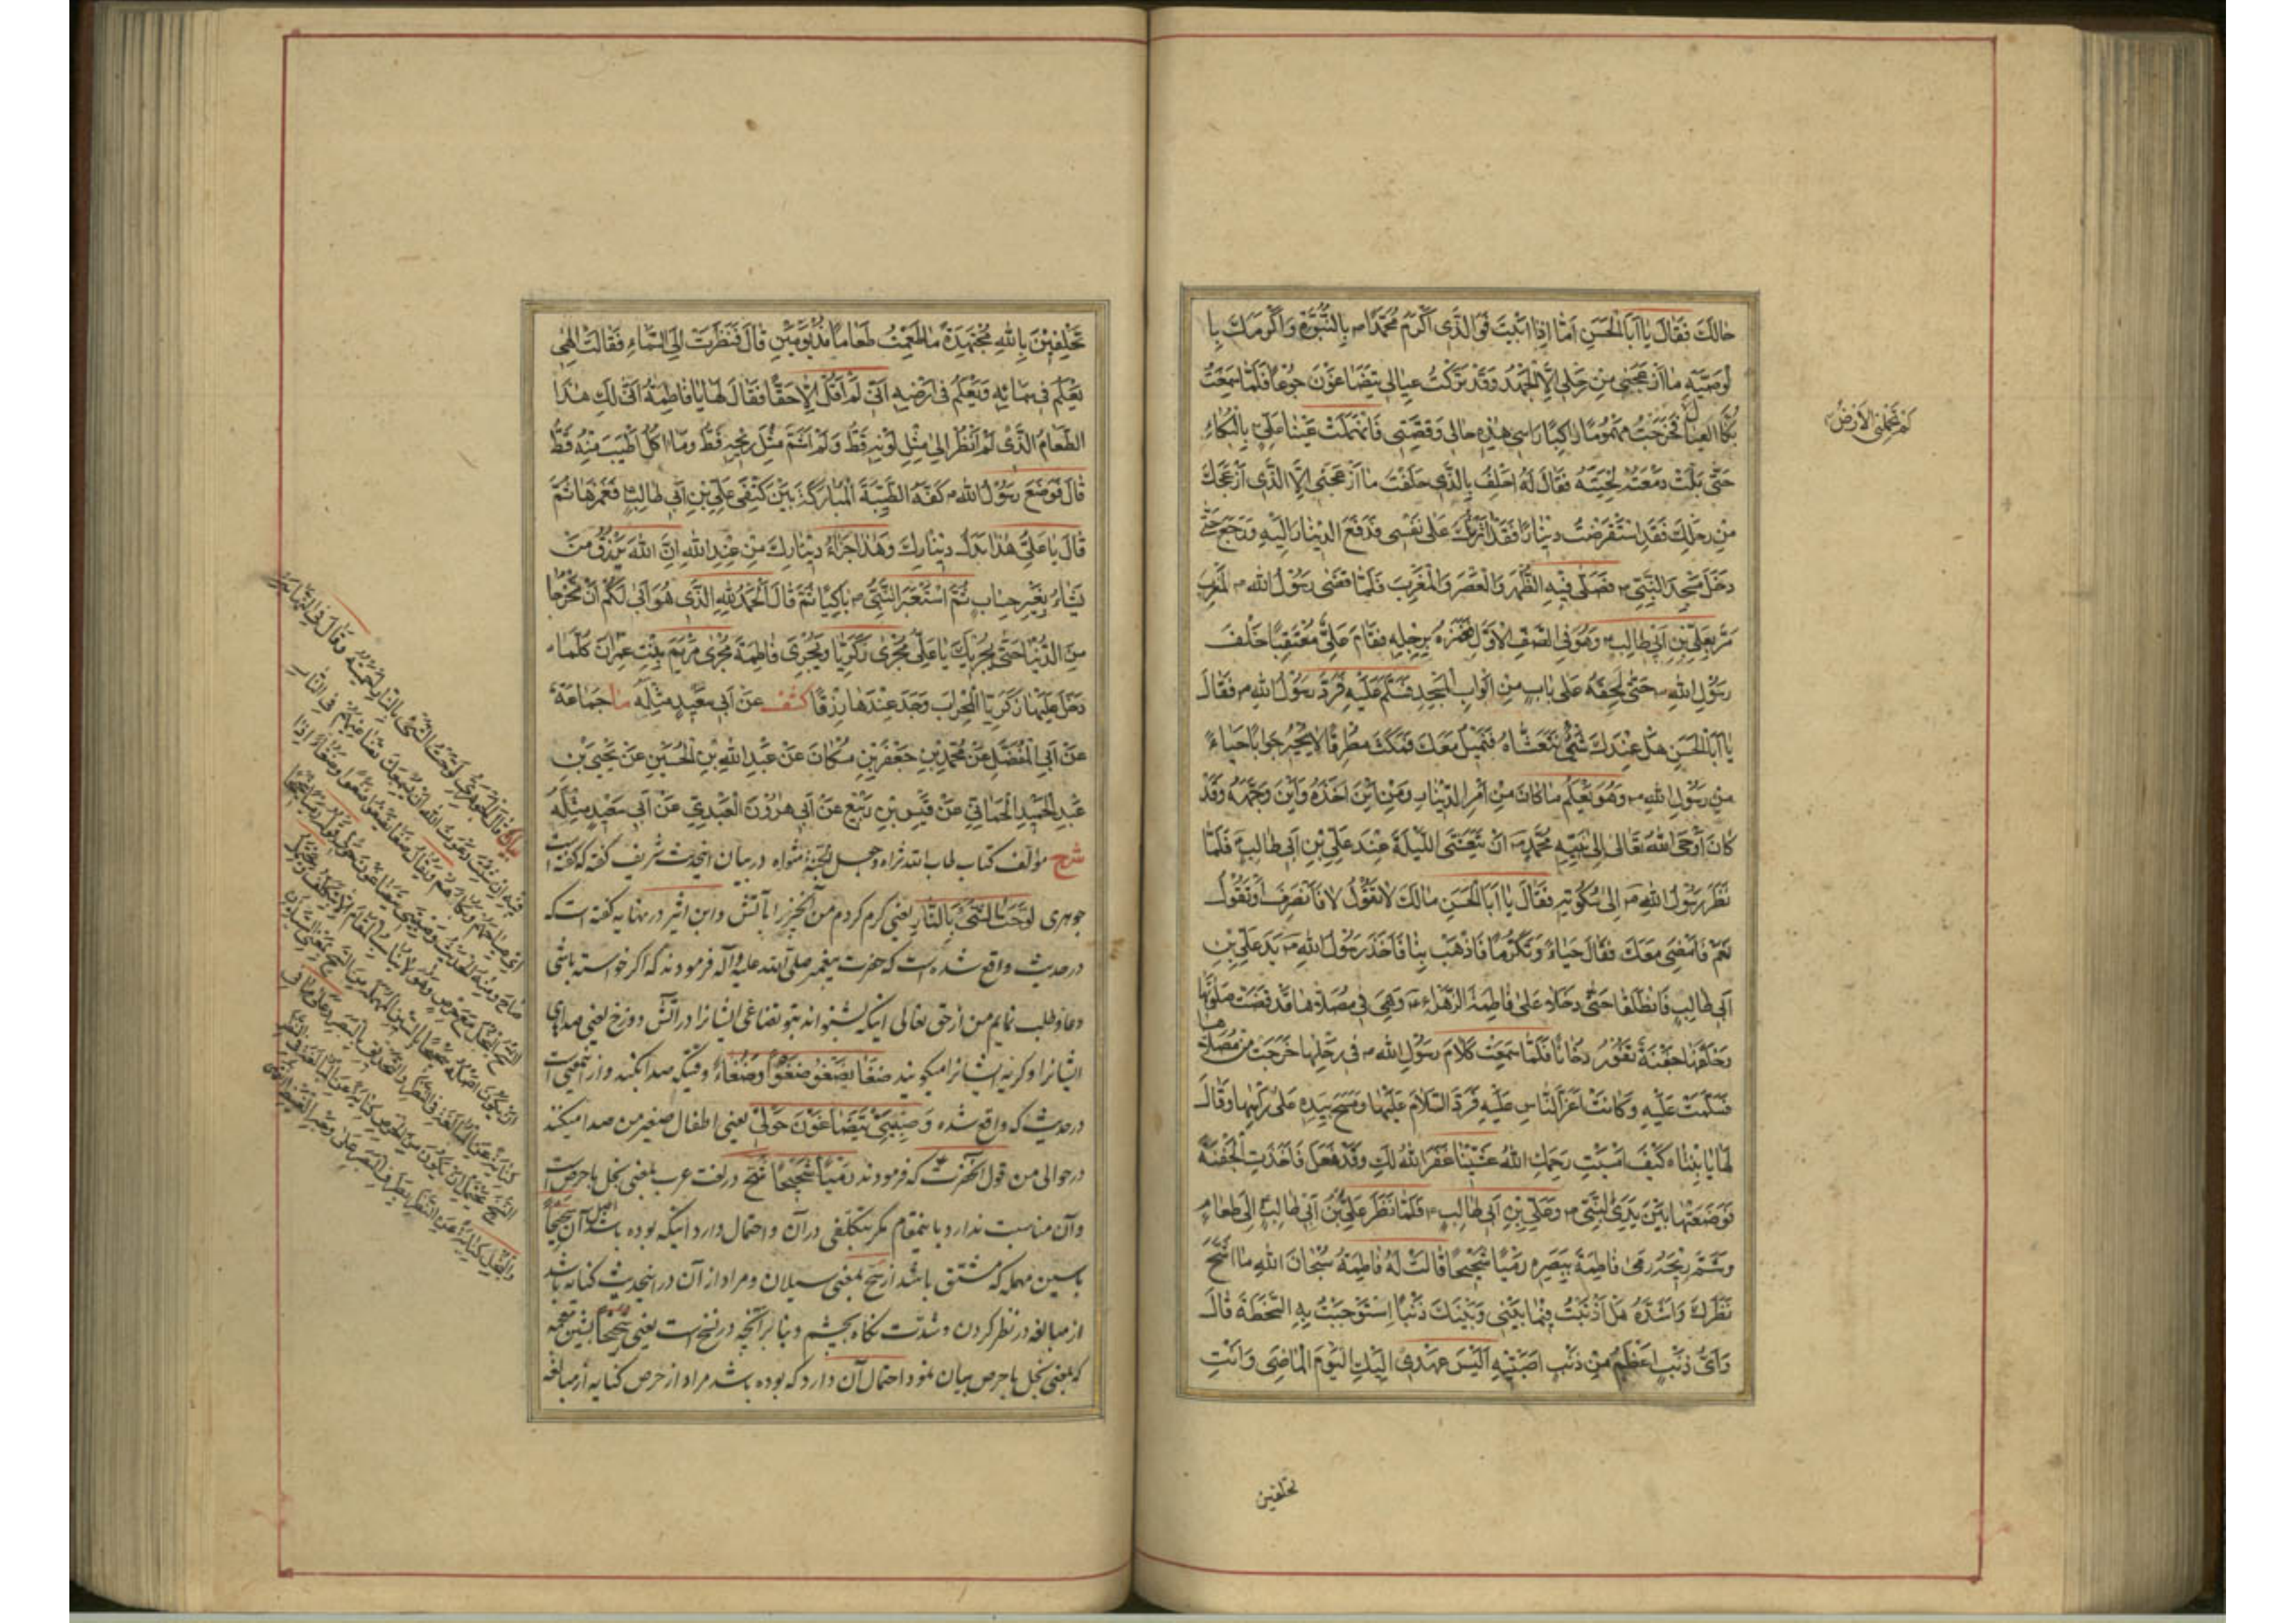 حالَكَ فَقالَ يا اَبَا الْحَسَنِ اَمّا اِذا اَبَيْتَ فَوَ الَّذي اَكْرَمَ مُحَمَّداً ص بِالنُّبُوَّةِ وَ اَكْرَمَكَ بِا
لْوَصِيَّةِ ما اَزْعَجَني مِنْ رَحْلي اِلَّا الْجَهْدُ وَقَدْ تَرَكْتُ عِيالي يَتَضاغَوْنَ جُوعاً فَلَمّا سَمِعْتُ
بُكاءَ الْعِيالِ فَخَرَجْتُ مَهْمُوماً راكِباً رَاْسي هٰذِهِ حالي وَقِصَّتي فَانْهَمَلَتْ عَيْنا عَلِيٍّ بِالْبُكاءِ
لَمْ تَحْمِلْني الْاَرْضُ
حَتّى بَلَّتْ دَمْعَتُهُ لِحْيَتَهُ فَقالَ لَهُ اَحْلِفُ بِالَّذي حَلَفْتَ ما اَزْعَجَني اِلَّا الَّذي اَزْعَجَكَ
مِنْ رَحْلِكَ فَقَدِ اسْتَقْرَضْتُ ديناراً فَقَدْ آثَرْتُكَ عَلى نَفْسي فَدَفَعَ الدّينارَ اِلَيْهِ وَرَجَعَ حَتّى
دَخَلَ مَسْجِدَ النَّبِيِّ ص فَصَلّى فيهِ الظُّهْرَ وَالْعَصْرَ وَالْمَغْرِبَ فَلَمّا قَضى رَسُولُ اللهِ ص الْمَغْرِبَ
مَرَّ بِعَلِيِّ بْنِ اَبي طالِبٍ وَهُوَ فِي الصَّفِّ الْاَوَّلِ فَغَمَزَهُ بِرِجْلِهِ فَقامَ عَلِيٌّ مُعْتَقِباً خَلْفَ
رَسُولِ اللهِ ص حَتّى لَحِقَهُ عَلى بابٍ مِنْ اَبْوابِ الْمَسْجِدِ فَسَلَّمَ عَلَيْهِ فَرَدَّ رَسُولُ اللهِ ص فَقالَ
يا اَبَا الْحَسَنِ هَلْ عِنْدَكَ شَيْءٌ نَتَعَشّاهُ فَنَميلَ مَعَكَ فَمَكَثَ مُطْرِقاً لا يُحيرُ جَواباً حَياءً
مِنْ رَسُولِ اللهِ ص وَهُوَ يَعْلَمُ ما كانَ مِنْ اَمْرِ الدّينارِ وَمِنْ اَيْنَ اَخَذَهُ وَاَيْنَ وَجَّهَهُ وَقَدْ
كانَ اَوْحَى اللهُ تَعالى اِلى نَبِيِّهِ مُحَمَّدٍ ص اَنْ يَتَعَشَّى اللَّيْلَةَ عِنْدَ عَلِيِّ بْنِ اَبي طالِبٍ فَلَمّا
نَظَرَ رَسُولُ اللهِ ص اِلى سُكُوتِهِ فَقالَ يا اَبَا الْحَسَنِ مالَكَ لا تَقُولُ لا فَاَنْصَرِفَ اَوْ تَقُولُ
نَعَمْ فَاَمْضِيَ مَعَكَ فَقالَ حَياءً وَتَكَرُّماً فَاذْهَبْ بِنا فَاَخَذَ رَسُولُ اللهِ ص يَدَ عَلِيِّ بْنِ
اَبي طالِبٍ فَانْطَلَقا حَتّى دَخَلا عَلى فاطِمَةَ الزَّهْراءِ ع وَهِيَ في مُصَلّاها قَدْ قَضَتْ صَلوتَها
وَخَلْفَها جَفْنَةٌ تَفُورُ دُخاناً فَلَمّا سَمِعَتْ كَلامَ رَسُولِ اللهِ ص في رَحْلِها خَرَجَتْ مِنْ مُصَلّاها
فَسَلَّمَتْ عَلَيْهِ وَكانَتْ اَعَزَّ النّاسِ عَلَيْهِ فَرَدَّ السَّلامَ عَلَيْها وَمَسَحَ بِيَدِهِ عَلى رَاْسِها وَقالَ
لَها يا بِنْتاهُ كَيْفَ اَمْسَيْتِ رَحِمَكِ اللهُ عَشّينا غَفَرَ اللهُ لَكِ وَقَدْ فَعَلَ فَاَخَذَتِ الْجَفْنَةَ
فَوَضَعَتْها بَيْنَ يَدَيِ النَّبِيِّ ص وَعَلِيِّ بْنِ اَبي طالِبٍ ع فَلَمّا نَظَرَ عَلِيُّ بْنُ اَبي طالِبٍ اِلى طَعامٍ
وَشَمَّ ريحَهُ رَمى فاطِمَةَ بِبَصَرِهِ رَمْياً شَحيحاً قالَتْ لَهُ فاطِمَةُ سُبْحانَ اللهِ ما اَشَحَّ
نَظَرَكَ وَاَشَدَّهُ هَلْ اَذْنَبْتُ فيما بَيْني وَبَيْنَكَ ذَنْباً اِسْتَوْجَبْتُ بِهِ السَّخْطَةَ قالَ
وَاَيُّ ذَنْبٍ اَعْظَمُ مِنْ ذَنْبٍ اَصَبْتِهِ اَلَيْسَ عَهْدي اِلَيْكِ الْيَوْمَ الْماضِيَ وَاَنْتِ
تحلفين
تَحْلِفينَ بِاللهِ مُجْتَهِدَةً ما طَعِمْتُ طَعاماً مُذْ يَوْمَيْنِ قالَ فَنَظَرَتْ اِلَى السَّماءِ فَقالَتْ اِلٰهي
يَعْلَمُ في سَمائِهِ وَيَعْلَمُ في اَرْضِهِ اَنّي لَمْ اَقُلْ اِلّا حَقّاً فَقالَ لَها يا فاطِمَةُ اَنّى لَكِ هٰذَا
الطَّعامُ الَّذي لَمْ اَنْظُرْ اِلى مِثْلِ لَوْنِهِ قَطُّ وَلَمْ اَشَمَّ مِثْلَ ريحِهِ قَطُّ وَما اَكُلْ اَطْيَبَ مِنْهُ قَطُّ
قالَ فَوَضَعَ رَسُولُ اللهِ ص كَفَّهُ الطَّيِّبَةَ الْمُبارَكَةَ بَيْنَ كَتِفَيْ عَلِيِّ بْنِ اَبي طالِبٍ فَغَمَزَها ثُمَّ
قالَ يا عَلِيُّ هٰذا بَدَلُ دينارِكَ وَهٰذا جَزاءُ دينارِكَ مِنْ عِنْدِ اللهِ اِنَّ اللهَ يَرْزُقُ مَنْ
يَشاءُ بِغَيْرِ حِسابٍ ثُمَّ اسْتَعْبَرَ النَّبِيُّ ص باكِياً ثُمَّ قالَ اَلْحَمْدُ لِلّهِ الَّذي هُوَ اَبى لَكُمْ اَنْ تَخْرُجا
مِنَ الدُّنْيا حَتّى يُجْرِيَكَ يا عَلِيُّ مُجْرى زَكَرِيّا وَيُجْرِيَ فاطِمَةَ مُجْرى مَرْيَمَ بِنْتِ عِمْرانَ كُلَّما
دَخَلَ عَلَيْها زَكَرِيَّا الْمِحْرابَ وَجَدَ عِنْدَها رِزْقاً كشف عَنْ اَبي سَعيدٍ مِثْلَهُ ما جَماعَةٌ
عَنْ اَبِي الْمُفَضَّلِ عَنْ مُحَمَّدِ بْنِ جَعْفَرِ بْنِ مُكانَ عَنْ عَبْدِ اللهِ بْنِ الْحُسَيْنِ عَنْ يَحْيَى بْنِ
عَبْدِ الْحَميدِ الْحَمّاني عَنْ قَيْسِ بْنِ رَبيعٍ عَنْ اَبي هٰرُونَ الْعَبْدِيِّ عَنْ اَبي سَعيدٍ مِثْلَهُ
شرح مؤلف کتاب طاب الله ثراه وجعل الجنة مثواه در بیان اینحدیث شریف گفته که گفته است
جوهری لَوَّحْتُ الشَّيْءَ بِالنّارِ یعنی گرم کردم من آنچیز را باتش و ابن اثیر در نهایه گفته است که
در حدیث واقع شده است که حضرت پیغمبر صلی الله علیه وآله فرمودند که اگر خواسته باشی
دعا و طلب نمایم من از حق تعالی اینکه بشنواند بتو تضاغی ایشانرا در آتش دوزخ یعنی صدای
ایشانرا و گریه ایشانرا میگویند ضَغا يَضْغُو ضَغْواً وَضُغاءً وقتیکه صدا بکند و از این معنی است
در حدیث که واقع شده وَصِبْيَتي يَتَضاغَوْنَ حَوْلي یعنی اطفال صغیر من صدا میکنند
در حوالی من قول آنحضرت که فرمودند رَمْياً شَحيحاً شُحّ در لغت عرب بمعنی بخل با حرص است
و آن مناسبت ندارد با ینمقام مگر بتکلفی در آن و احتمال دارد اینکه بوده باشد اصل آن سحیحاً
با سین مهمله که مشتق باشد از سح بمعنی سیلان و مراد از آن در اینحدیث کنایه باشد
از مبالغه در نظر کردن و شدت نگاه بچشم و بنا بر آنچه در نسخ است یعنی شحیحاً بشین معجمه
که بمعنی بخل با حرص بیان نمود احتمال آن دارد که بوده باشد مراد از حرص کنایه از مبالغه
بيان قال الجوهري لوّحت الشيء بالنار احميته وقال في النهاية